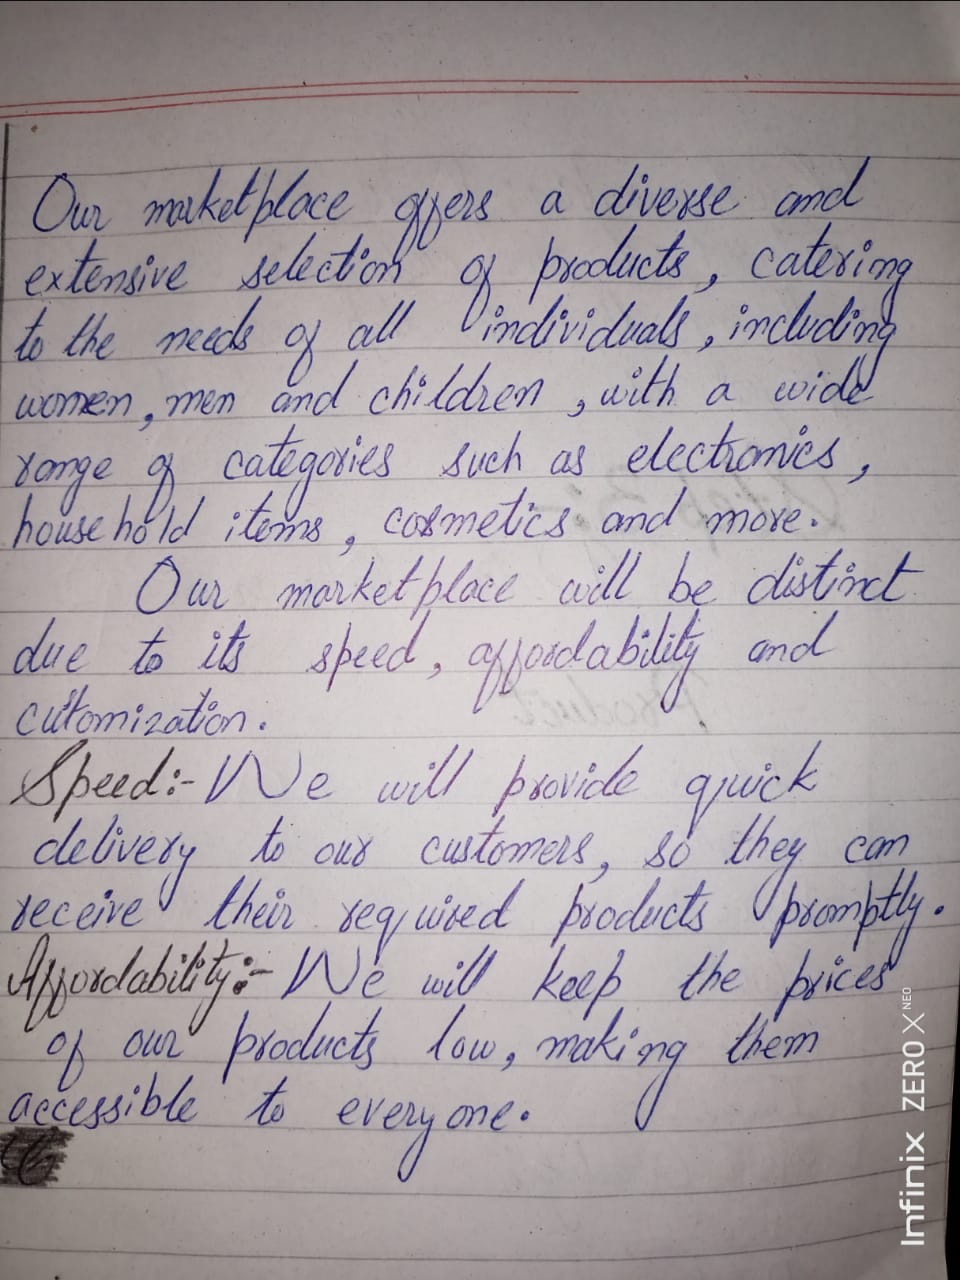 Our marketplace offers a diverse and
extensive selection of products, catering
to the needs of all individuals, including
women, men and children, with a wide
range of categories such as electronics,
household items, cosmetics and more.
Our marketplace will be distinct
due to its speed, affordability and
cutomization.
Speed:- We will provide quick
delivery to our customers, so they can
receive their required products promptly.
Affordability:- We will keep the prices
of our products low, making them
accessible to everyone.
Infinix ZERO X NEO